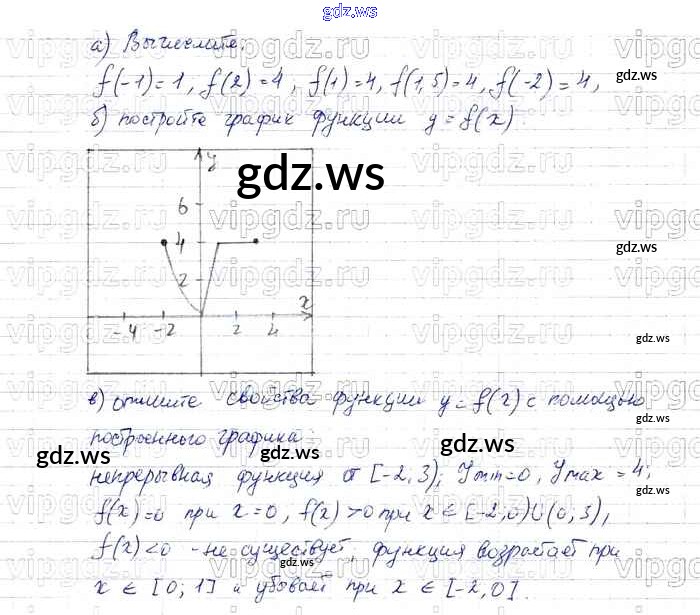 gdz.ws
а) Вычислите.
f(-1)=1, f(2)=4, f(1)=4, f(1,5)=4, f(-2)=4,
gdz.ws
б) постройте график функции y=f(x).
gdz.ws
y
6
4
2
x
-4 -2 2 4
gdz.ws
gdz.ws
в) опишите свойства функции y=f(x) с помощью
построенного графика.
gdz.ws
gdz.ws
gdz.ws
непрерывная функция от [-2; 3), Ymin=0, Ymax=4;
gdz.ws
f(x)=0 при x=0, f(x)>0 при x∈[-2,0)∪(0,3),
f(x)<0 - не существует, функция возрастает при
gdz.ws
gdz.ws
x ∈ [0; 1] и убывает при x ∈ [-2,0].
gdz.ws
vipgdz.ru
vipgdz.ru
vipgdz.ru